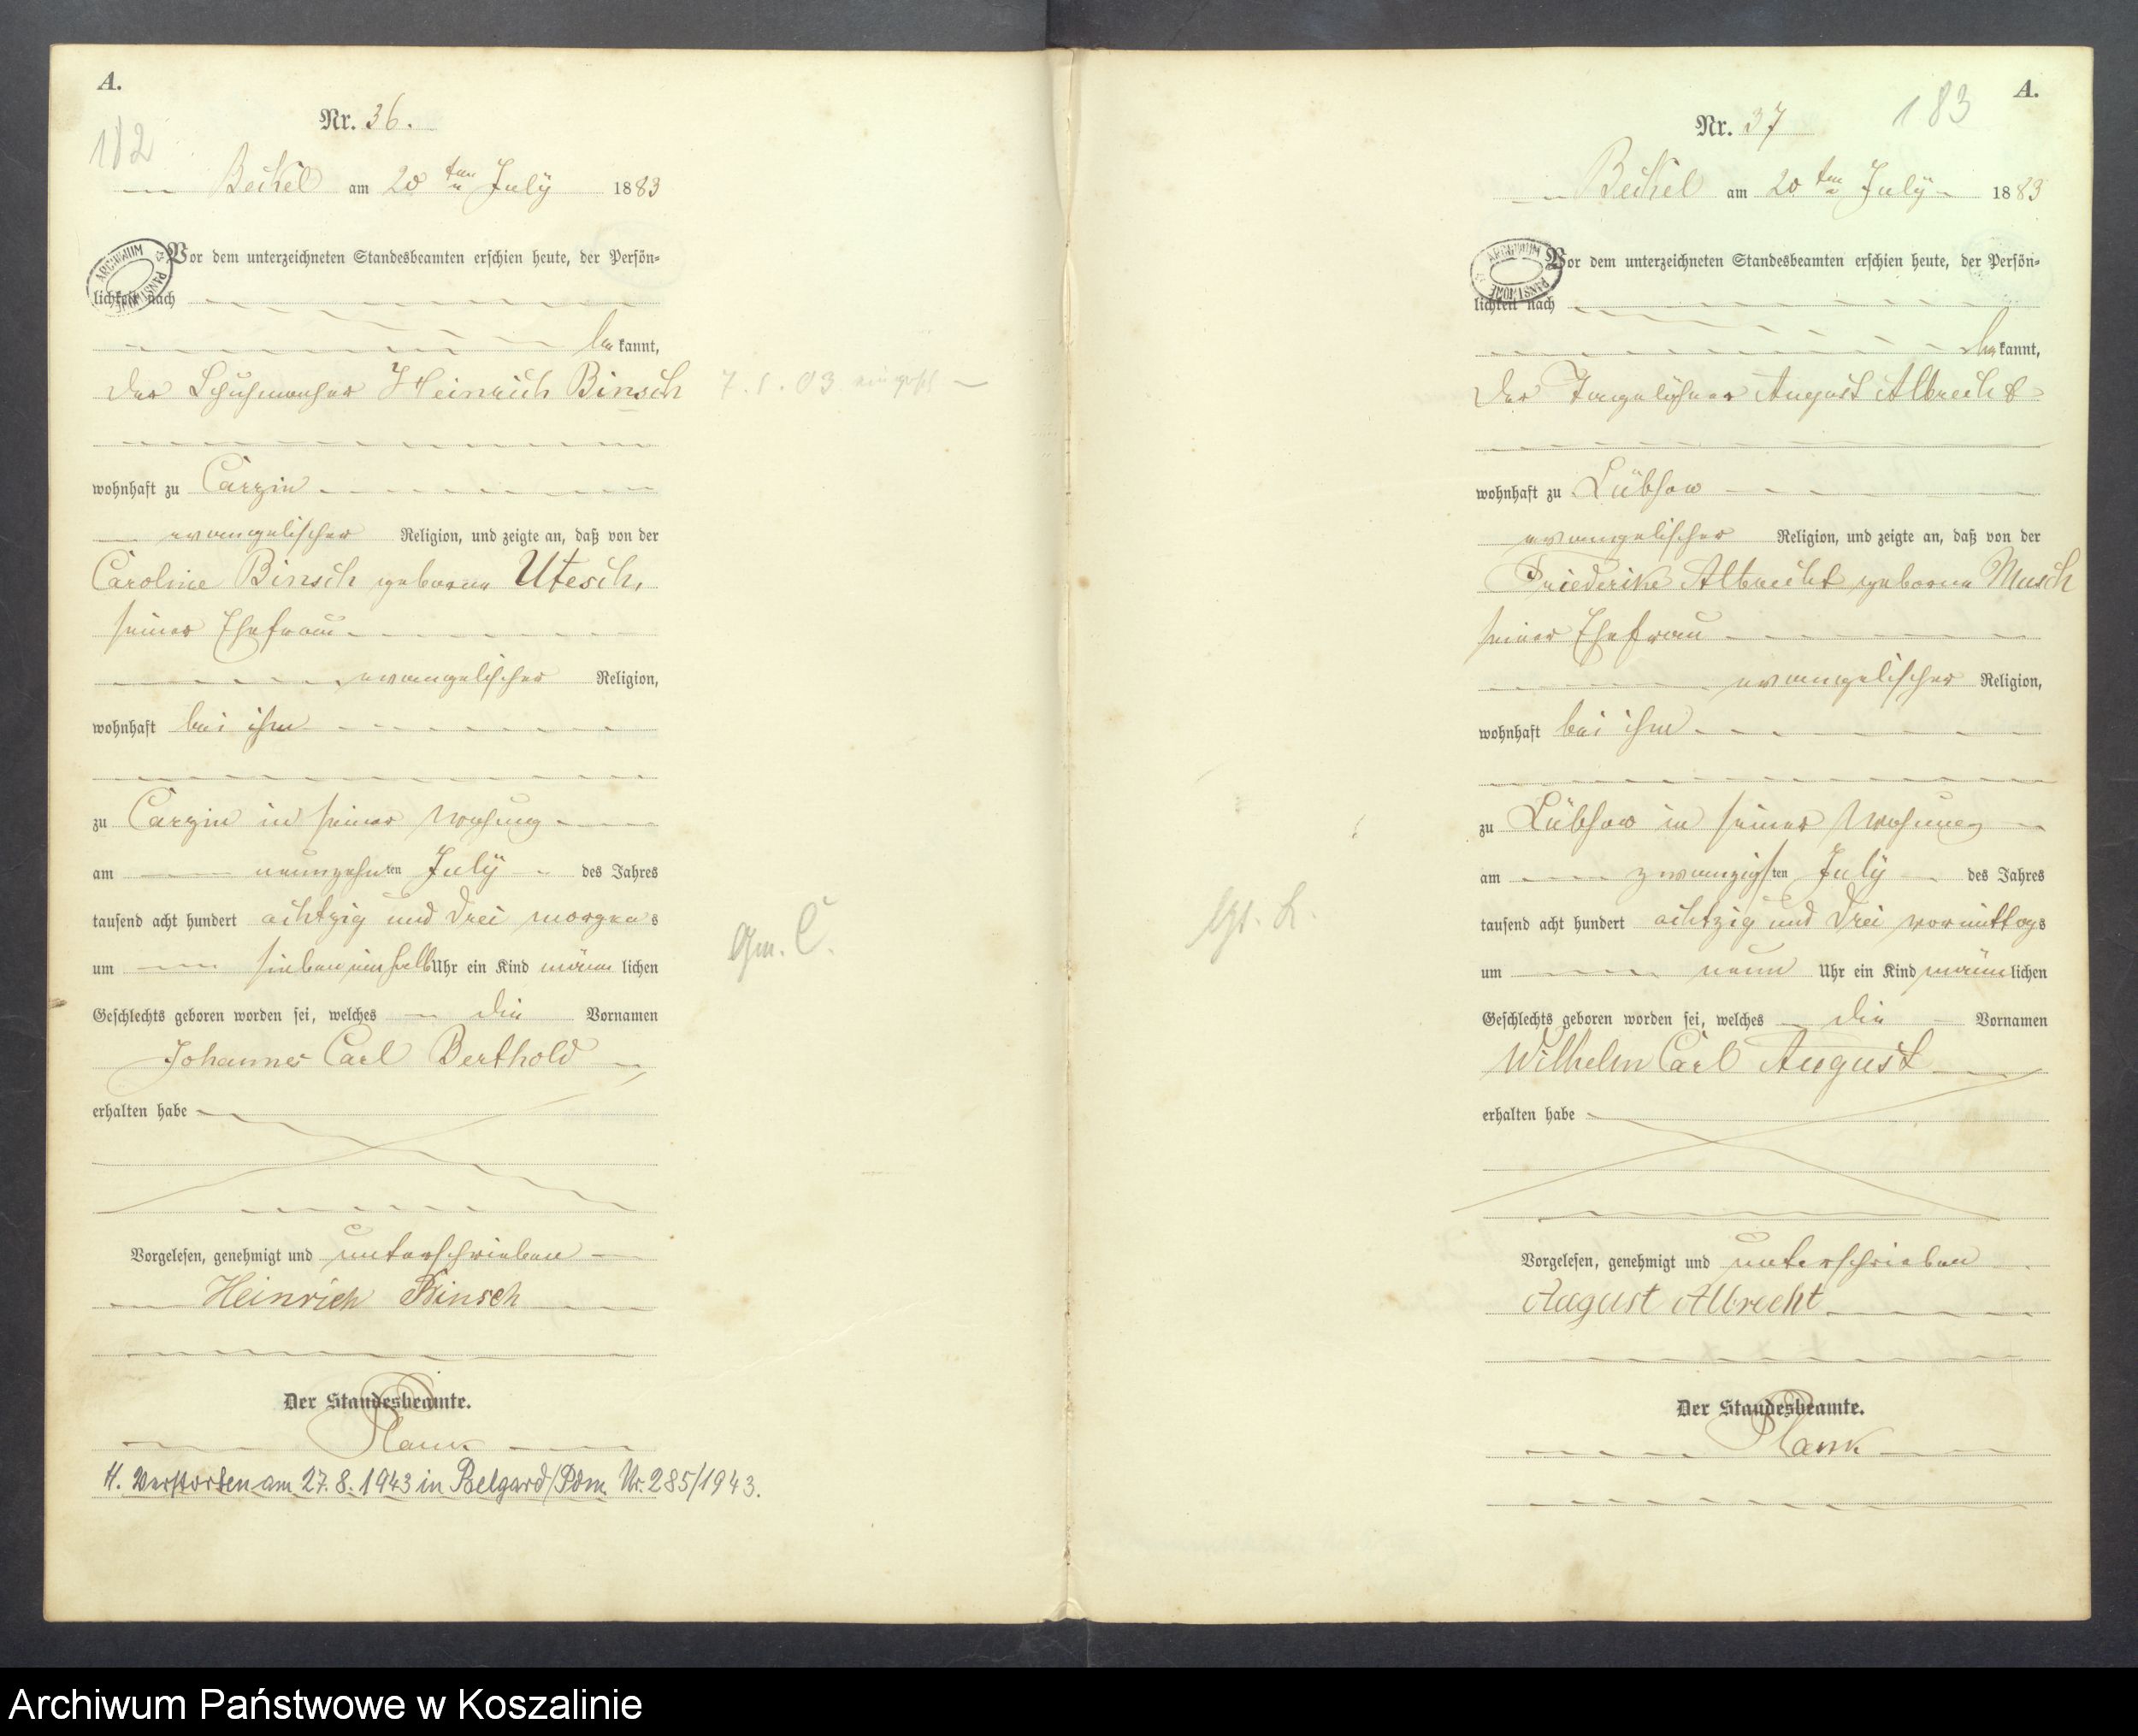 A.
Nr. 36.
182
Beckel am 20ten July 1883
ARCHIWUM PAŃSTWOWE
Vor dem unterzeichneten Standesbeamten erschien heute, der Persön=
lichkeit nach
be kannt,
der Schuhmacher Heinrich Binsch
7. 1. 03
wohnhaft zu Carzin
evangelischer Religion, und zeigte an, daß von der
Caroline Binsch geborne Utesch,
seiner Ehefrau
evangelischer Religion,
wohnhaft bei ihm
zu Carzin in seiner Wohnung
am neunzehnten July des Jahres
tausend acht hundert achtzig und drei morgens
um sieben einhalb Uhr ein Kind männ lichen
Geschlechts geboren worden sei, welches die Vornamen
Johannes Carl Berthold
erhalten habe
Vorgelesen, genehmigt und unterschrieben
Heinrich Binsch
Der Standesbeamte.
Plank
H. Verstorben am 27.8.1943 in Belgard/Pom. Nr. 285/1943.
A.
183
Nr. 37
Beckel am 20ten July 1883
ARCHIWUM PAŃSTWOWE
Vor dem unterzeichneten Standesbeamten erschien heute, der Persön=
lichkeit nach
be kannt,
der Tagelöhner August Albrecht
wohnhaft zu Lübsow
evangelischer Religion, und zeigte an, daß von der
Friederike Albrecht geborne Musch
seiner Ehefrau
evangelischer Religion,
wohnhaft bei ihm
zu Lübsow in seiner Wohnung
am zwanzigsten July des Jahres
tausend acht hundert achtzig und drei vormittags
um neun Uhr ein Kind männ lichen
Geschlechts geboren worden sei, welches die Vornamen
Wilhelm Carl August
erhalten habe
Vorgelesen, genehmigt und unterschrieben
August Albrecht
Der Standesbeamte.
Plank
Archiwum Państwowe w Koszalinie